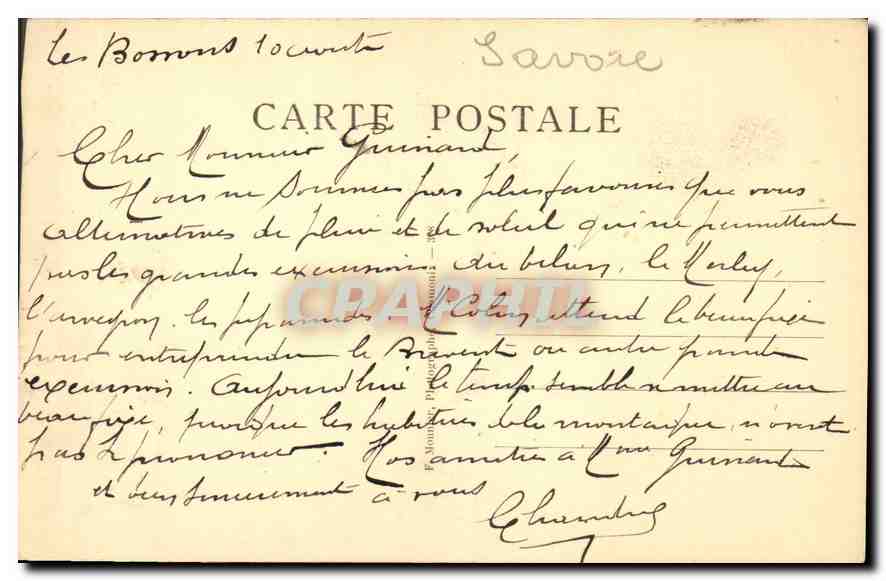 Les Bossons 10 août
Savoie
CARTE POSTALE
Cher Monsieur Guinard,
Nous ne sommes pas plus favorisés que vous
alternatives de pluie et de soleil qui ne permettent
pas les grandes excursions du
l' les pyramides. Mr Colin attend le beau fixe
pour entreprendre le Buvent ou autre grande
excursion. Aujourd'hui le temps semble se mettre au
beau fixe, puisque les habitués de la montagne, n'osent
pas se prononcer. Nos amitiés à Mme Guinard
et bien sincèrement à vous
F. Monnier, Photographe
CPAPHIL